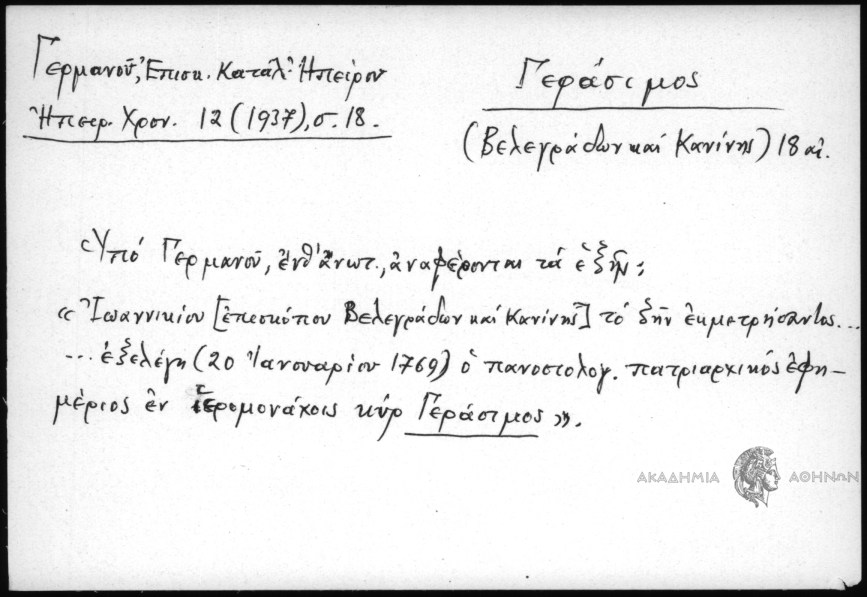 Γερμανοῦ, Ἐπισκ. Κατάλ. Ἠπείρου
Ἠπειρ. Χρον. 12 (1937), σ. 18.
Γεράσιμος
(Βελεγράδων καί Κανίνης) 18 αἰ.
Ὑπό Γερμανοῦ, ἔνθ' ἀνωτ., ἀναφέρονται τά ἑξῆς:
« Ἰωαννικίου [ἐπισκόπου Βελεγράδων καί Κανίνης] τό ζῆν ἐκμετρήσαντος...
... ἐξελέγη (20 Ἰανουαρίου 1769) ὁ πανοσιολογ. πατριαρχικός ἐφη-
μέριος ἐν ἱερομονάχοις κύρ Γεράσιμος ».
ΑΚΑΔΗΜΙΑ ΑΘΗΝΩΝ